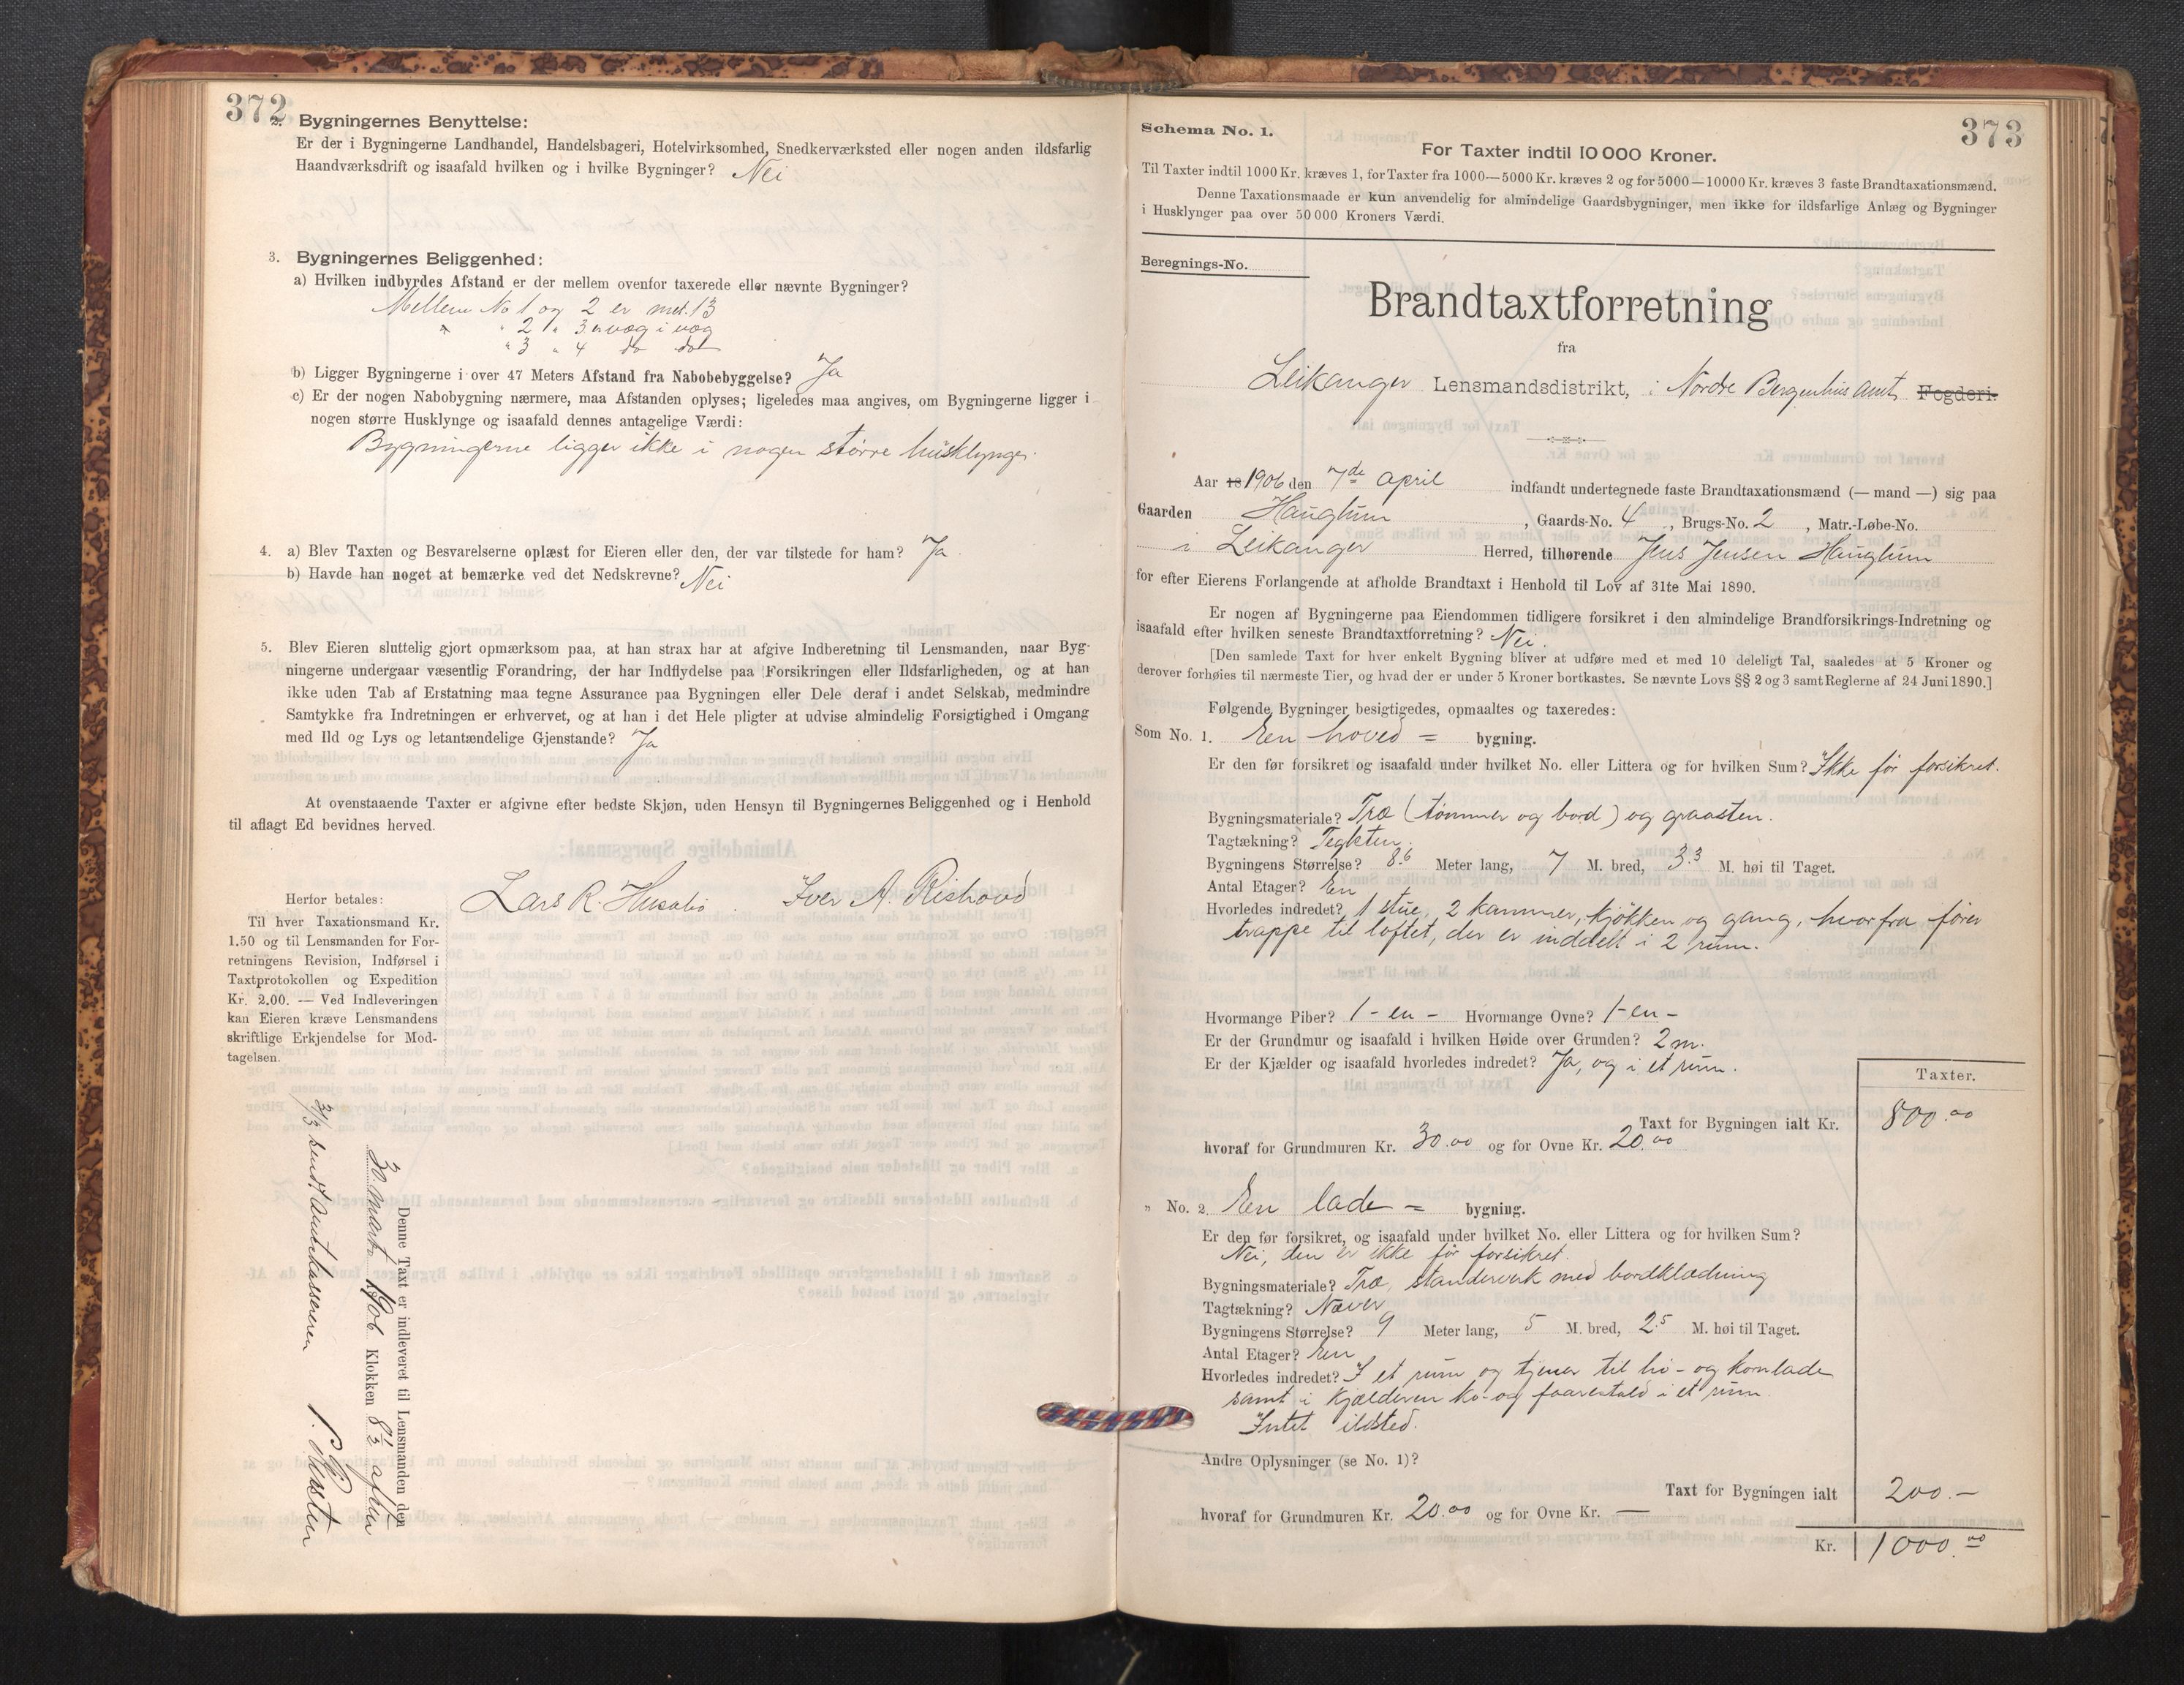 372
2. Bygningernes Benyttelse:
Er der i Bygningerne Landhandel, Handelsbageri, Hotelvirksomhed, Snedkerværksted eller nogen anden ildsfarlig
Haandværksdrift og isaafald hvilken og i hvilke Bygninger? Nei
3. Bygningernes Beliggenhed:
a) Hvilken indbyrdes Afstand er der mellem ovenfor taxerede eller nævnte Bygninger?
Mellem No 1 og 2 er met. 13
" " 2 " 3 er væg i væg
" 3 " 4 do do
b) Ligger Bygningerne i over 47 Meters Afstand fra Nabobebyggelse? Ja
c) Er der nogen Nabobygning nærmere, maa Afstanden oplyses; ligeledes maa angives, om Bygningerne ligger i
nogen større Husklynge og isaafald dennes antagelige Værdi:
Bygningerne ligger ikke i nogen større husklynge.
4. a) Blev Taxten og Besvarelserne oplæst for Eieren eller den, der var tilstede for ham? Ja
b) Havde han noget at bemærke ved det Nedskrevne? Nei
5. Blev Eieren sluttelig gjort opmærksom paa, at han strax har at afgive Indberetning til Lensmanden, naar Byg-
ningerne undergaar væsentlig Forandring, der har Indflydelse paa Forsikringen eller Ildsfarligheden, og at han
ikke uden Tab af Erstatning maa tegne Assurance paa Bygningen eller Dele deraf i andet Selskab, medmindre
Samtykke fra Indretningen er erhvervet, og at han i det Hele pligter at udvise almindelig Forsigtighed i Omgang
med Ild og Lys og letantændelige Gjenstande? Ja
At ovenstaaende Taxter er afgivne efter bedste Skjøn, uden Hensyn til Bygningernes Beliggenhed og i Henhold
til aflagt Ed bevidnes herved.
Lars R. Husabø Iver A. Rishovd
Herfor betales:
Til hver Taxationsmand Kr.
1,50 og til Lensmanden for For-
retningens Revision, Indførsel i
Taxtprotokollen og Expedition
Kr. 2,00. — Ved Indleveringen
kan Eieren kræve Lensmandens
skriftlige Erkjendelse for Mod-
tagelsen.
Denne Taxt er indleveret til Lensmanden den
30. marts 1906 Klokken 8 1/2 aften
31/3 sendt Amtskassereren
373
Schema No. 1.
For Taxter indtil 10 000 Kroner.
Til Taxter indtil 1000 Kr. kræves 1, for Taxter fra 1000—5000 Kr. kræves 2 og for 5000—10000 Kr. kræves 3 faste Brandtaxationsmænd.
Denne Taxationsmaade er kun anvendelig for almindelige Gaardsbygninger, men ikke for ildsfarlige Anlæg og Bygninger
i Husklynger paa over 50 000 Kroners Værdi.
Beregnings-No.
Brandtaxtforretning
fra
Leikanger Lensmandsdistrikt, i Nordre Bergenhus Amt Fogderi.
Aar 18 1906 den 7de april indfandt undertegnede faste Brandtaxationsmænd (— mand —) sig paa
Gaarden Hauglum, Gaards-No. 4, Brugs-No. 2, Matr.-Løbe-No.
i Leikanger Herred, tilhørende Jens Jensen Hauglum
for efter Eierens Forlangende at afholde Brandtaxt i Henhold til Lov af 31te Mai 1890.
Er nogen af Bygningerne paa Eiendommen tidligere forsikret i den almindelige Brandforsikrings-Indretning og
isaafald efter hvilken seneste Brandtaxtforretning? Nei.
[Den samlede Taxt for hver enkelt Bygning bliver at udføre med et med 10 deleligt Tal, saaledes at 5 Kroner og
derover forhøies til nærmeste Tier, og hvad der er under 5 Kroner bortkastes. Se nævnte Lovs §§ 2 og 3 samt Reglerne af 24 Juni 1890.]
Følgende Bygninger besigtigedes, opmaaltes og taxeredes:
Som No. 1. En hoved = bygning.
Er den før forsikret og isaafald under hvilket No. eller Littera og for hvilken Sum? Ikke før forsikret.
Bygningsmateriale? Træ (tømmer og bord) og graasten.
Tagtækning? Teglsten.
Bygningens Størrelse? 8.6 Meter lang, 7 M. bred, 3.3 M. høi til Taget.
Antal Etager? En
Hvorledes indredet? 1 stue, 2 kammer, kjøkken og gang, hvorfra fører
trappe til loftet, der er inddelt i 2 rum.
Hvormange Piber? 1 - en - Hvormange Ovne? 1 - en -
Er der Grundmur og isaafald i hvilken Høide over Grunden? 2 m.
Er der Kjælder og isaafald hvorledes indredet? Ja, og i et rum.
Taxter.
Taxt for Bygningen ialt Kr. 800.00
hvoraf for Grundmuren Kr. 30.00 og for Ovne Kr. 20.00
" No. 2. En lade = bygning.
Er den før forsikret, og isaafald under hvilket No. eller Littera og for hvilken Sum?
Nei, den er ikke før forsikret.
Bygningsmateriale? Træ, standerverk med bordklædning
Tagtækning? Næver
Bygningens Størrelse? 9 Meter lang, 5 M. bred, 2.5 M. høi til Taget.
Antal Etager? En
Hvorledes indredet? I et rum og tjener til hø- og kornlade
samt i kjælderen ko- og faarestald i et rum.
Intet ildsted.
Andre Oplysninger (se No. 1)?
Taxt for Bygningen ialt 200.-
hvoraf for Grundmuren Kr. 20.00 og for Ovne Kr. —
Kr. 1000.00